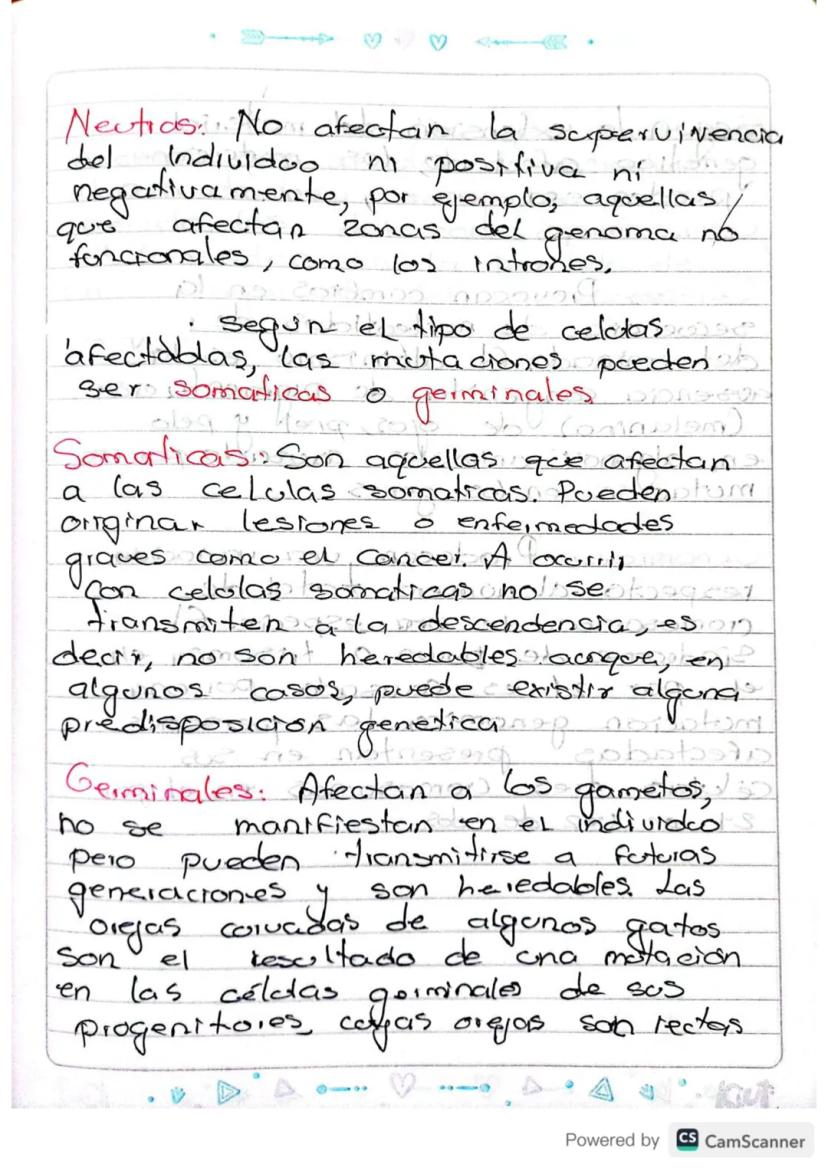 Neutras: No afectan la supervivencia
del individuo ni positiva ni
negativamente, por ejemplo, aquellas
que afectan zonas del genoma no
funcionales, como los intrones.
· según el tipo de celulas
afectadas, las mutaciones pueden
ser: somaticas o germinales
Somaticas: Son aquellas que afectan
a las celulas somaticas. Pueden
originar lesiones o enfermedades
graves como el cancer. A ocurrir
con celulas somaticas no se
transmiten a la descendencia, es
decir, no son heredables aunque, en
algunos casos, puede existir alguna
predisposicion genetica
Germinales: Afectan a los gametos,
no se manifiestan en el individuo
pero pueden transmitirse a futuras
generaciones y son heredables. Las
orejas curvadas de algunos gatos
son el resultado de una mutación
en las células germinales de sus
progenitores, cuyas orejas son rectas
Powered by CS CamScanner